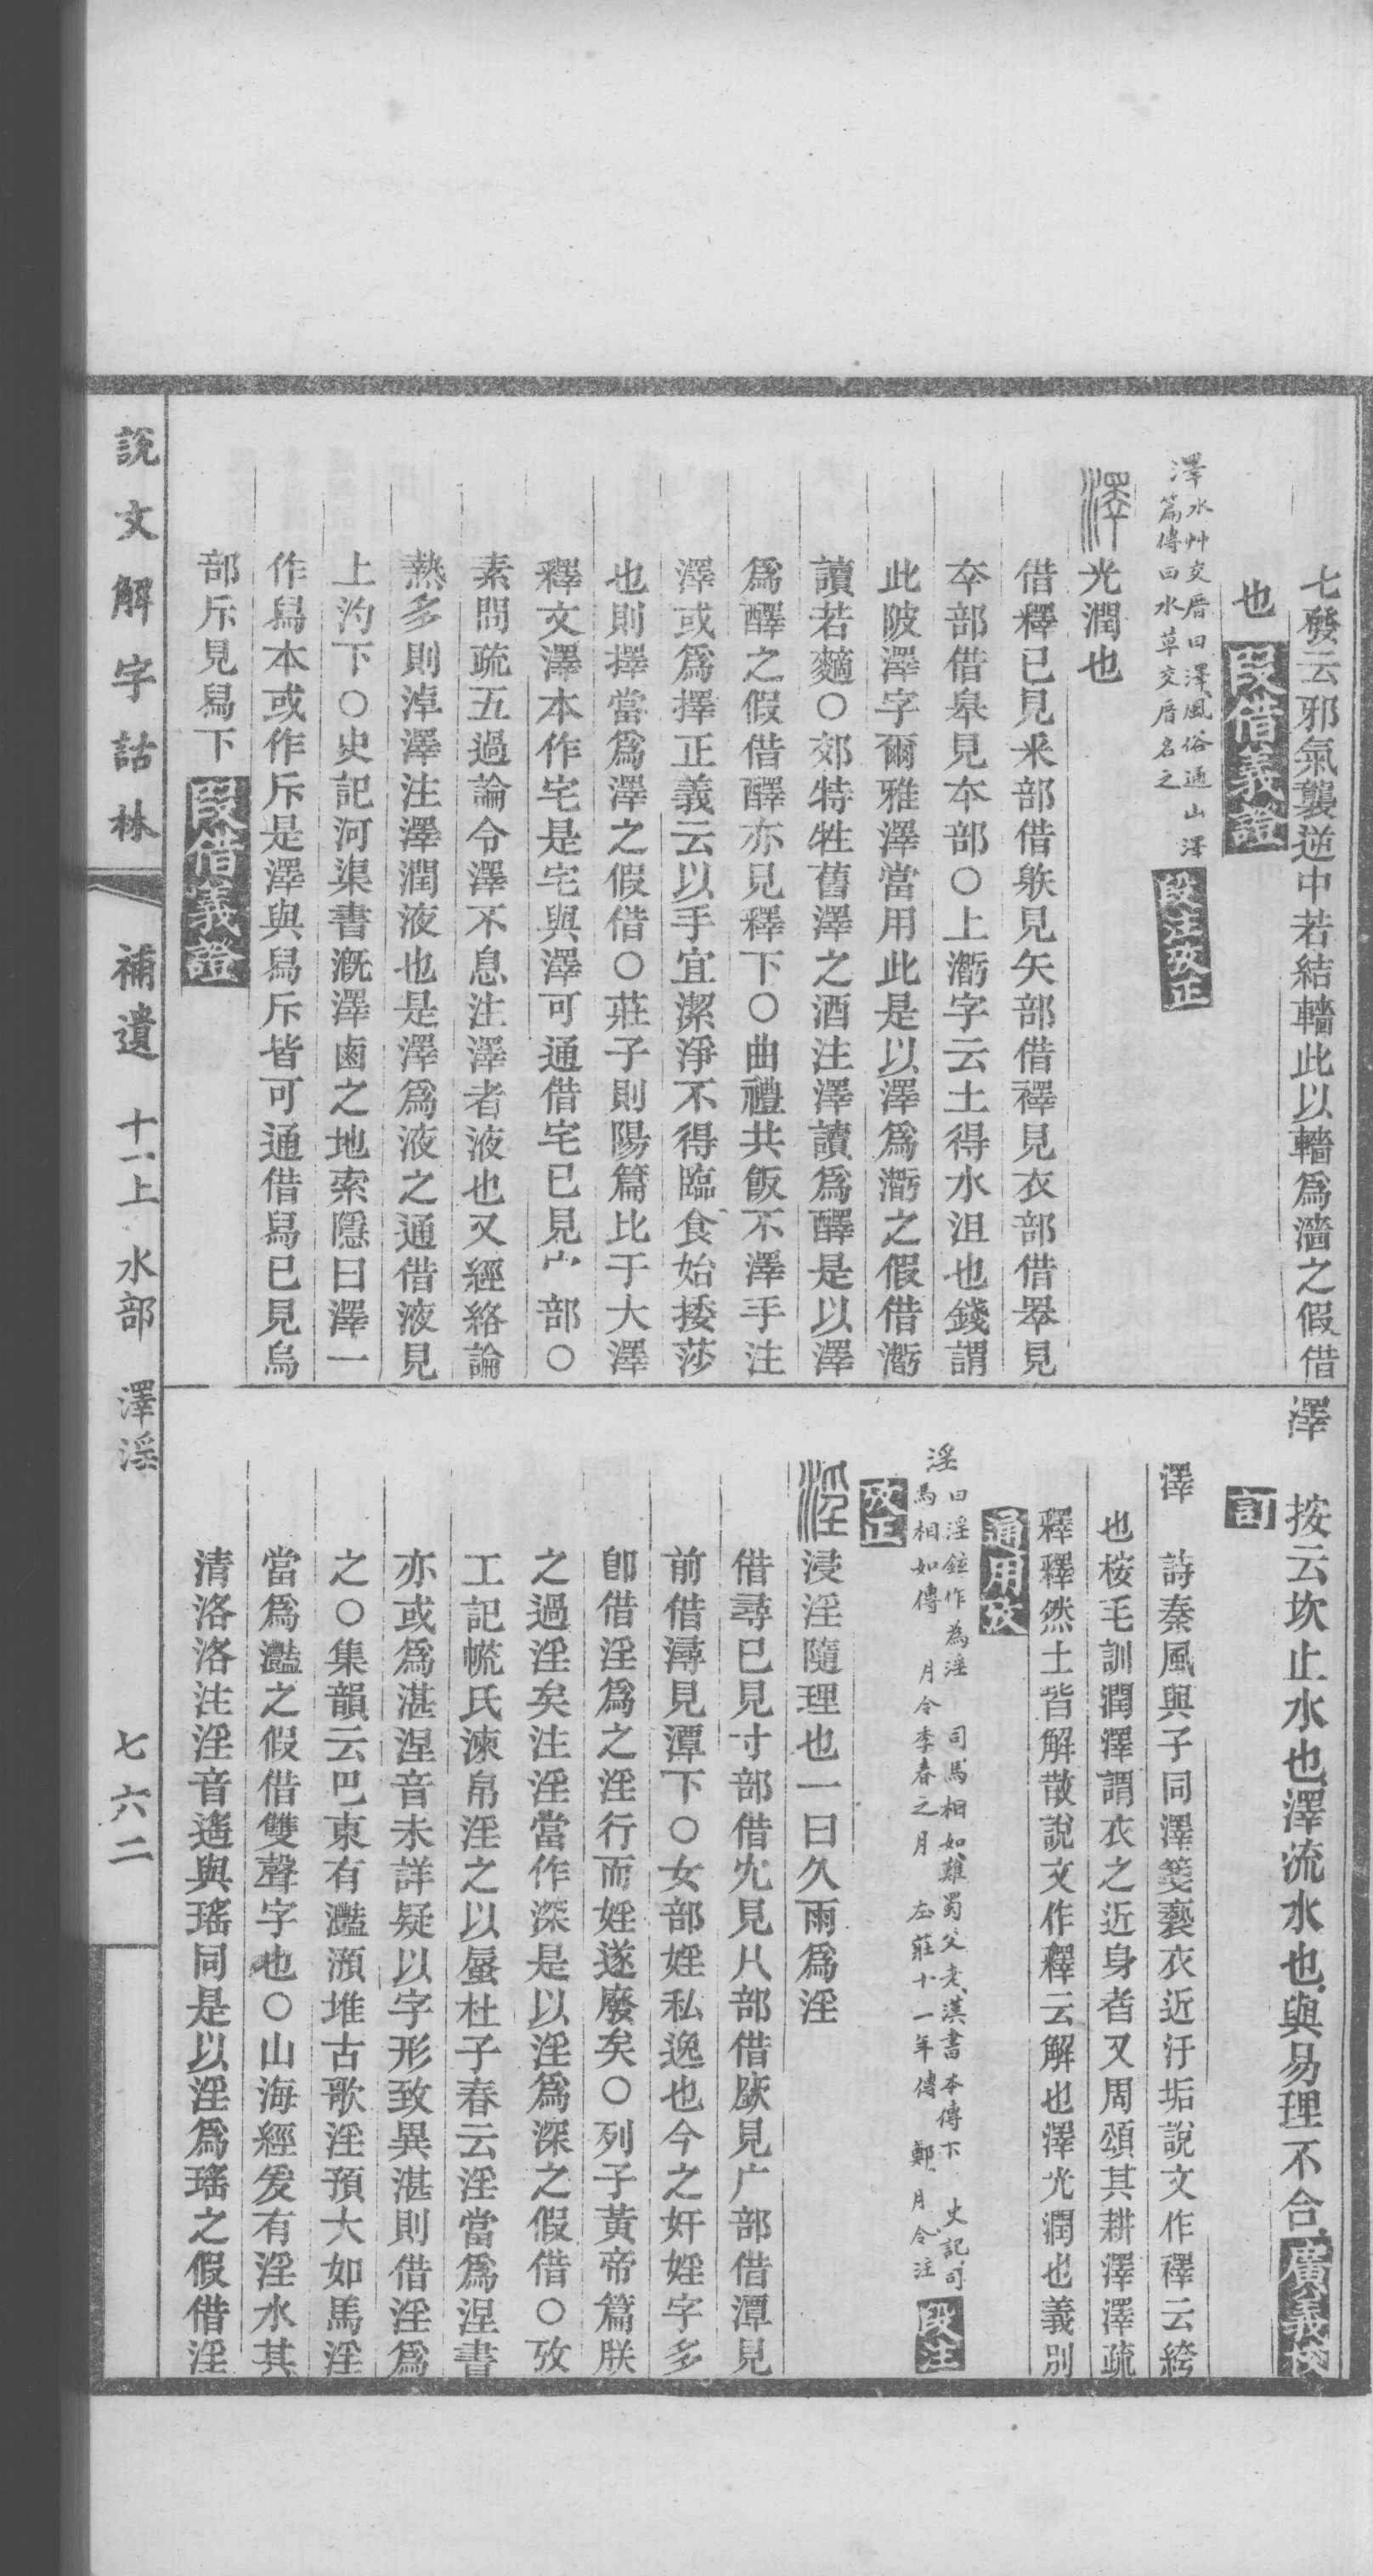 七發云邪氣襲逆中若結轖此以轖爲濇之假借
也 叚借義證
澤 水艸交厝曰澤 風俗通山澤
篇傳曰水草交厝名之 段注攷正
澤 光潤也
借釋已見釆部借𢍰見矢部借襗見衣部借睪見
㚔部借皋見夲部〇上㵐字云土得水沮也錢謂
此陂澤字爾雅澤當用此是以澤爲㵐之假借㵐
讀若䵂〇郊特牲舊澤之酒注澤讀爲醳是以澤
爲醳之假借醳亦見釋下〇曲禮共飯不澤手注
澤或爲擇正義云以手宜潔淨不得臨食始捼莎
也則擇當爲澤之假借〇莊子則陽篇比于大澤
釋文澤本作宅是宅與澤可通借宅已見宀部〇
素問疏五過論令澤不息注澤者液也又經絡論
熱多則淖澤注澤潤液也是澤爲液之通借液見
上汋下〇史記河渠書溉澤鹵之地索隱曰澤一
作舄本或作斥是澤與舄斥皆可通借舄已見烏
部斥見舄下 叚借義證
澤 按云坎止水也澤流水也與易理不合 廣義校
訂
澤 詩秦風與子同澤箋褻衣近汙垢說文作襗云絝
也桉毛訓潤澤謂衣之近身者又周頌其耕澤澤疏
釋釋然土皆解散說文作釋云解也澤光潤也義別
通用攷
淫 曰淫 鉉作為淫 司馬相如難蜀父老 漢書本傳下 史記司
馬相如傳 月令季春之月 左莊十一年傳 鄭月令注 段注
攷正
淫 浸淫隨理也一曰久雨爲淫
借尋已見寸部借冘見八部借廞見广部借潭見
前借潯見潭下〇女部婬私逸也今之奸婬字多
卽借淫爲之淫行而婬遂廢矣〇列子黃帝篇朕
之過淫矣注淫當作深是以淫爲深之假借〇攷
工記㡛氏湅帛淫之以蜃杜子春云淫當爲涅書
亦或爲湛涅音未詳疑以字形致異湛則借淫爲
之〇集韻云巴東有灩澦堆古歌淫預大如馬淫
當爲灩之假借雙聲字也〇山海經爰有淫水其
清洛洛注淫音遙與瑤同是以淫爲瑤之假借淫
說文解字詁林 補遺 十一上 水部 澤淫 七六二